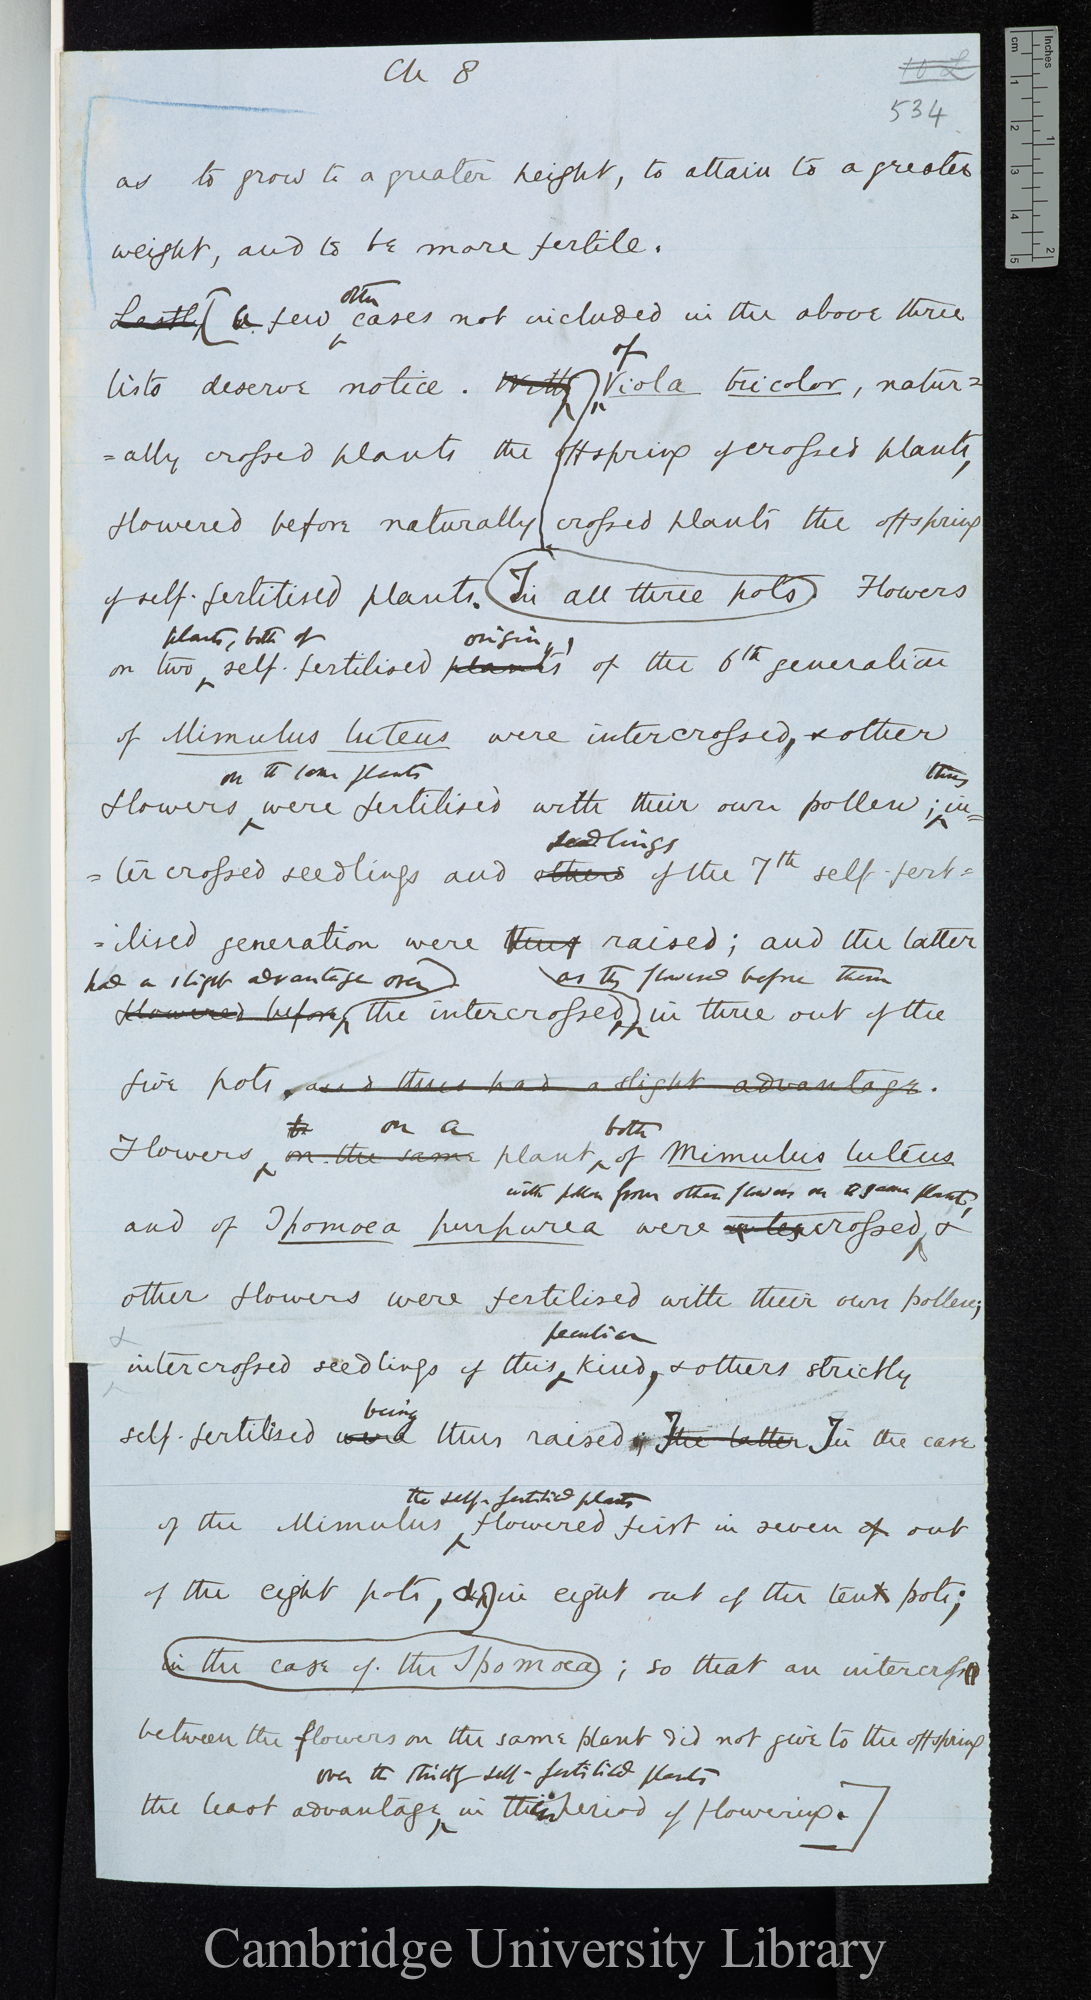 Ch 8
10 L
534
as to grow to a greater height, to attain to a greater
weight, and to be more fertile.
other
Lastly [A few cases not included in the above three
of
lists deserve notice. With Viola tricolor, natur=
=ally crossed plants the offspring of crossed plants,
flowered before naturally crossed plants the offspring
of self-fertilised plants. In all three pots Flowers
plants, both of origin,
on two self-fertilised plants of the 6th generation
of Mimulus luteus were intercrossed, & other
on the same plants thus
flowers were fertilised with their own pollen; in=
seedlings
=tercrossed seedlings and others of the 7th self-fert=
=ilised generation were thus raised; and the latter
had a slight advantage over as they flowered before them
flowered before, the intercrossed, in three out of the
five pots. and thus had a slight advantage.
on a both
Flowers on the same plant of Mimulus luteus
with pollen from other flowers on the same plant,
and of Ipomoea purpurea were intercrossed, &
other flowers were fertilised with their own pollen;
&
peculiar
intercrossed seedlings of this kind, & others strictly
being
self-fertilised were thus raised; The latter In the case
the self-fertilised plants
of the Mimulus flowered first in seven of out
of the eight pots, & in eight out of the ten pots;
in the case of the Ipomoea; so that an intercross
between the flowers on the same plant did not give to the offspring
over the strictly self-fertilised plants
the least advantage in their period of flowering.]
cm
1
2
3
4
5
Inches
1
2
Cambridge University Library